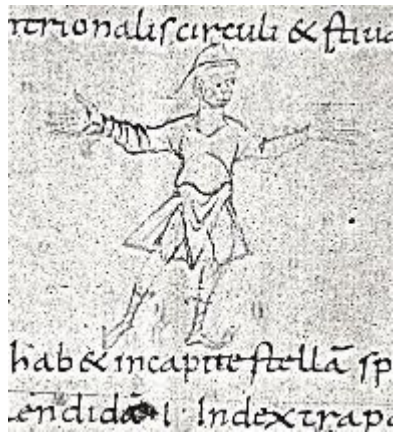 ntrionaliscirculi & stiua
hab& incapite stellā sp
endidā I Index trapa